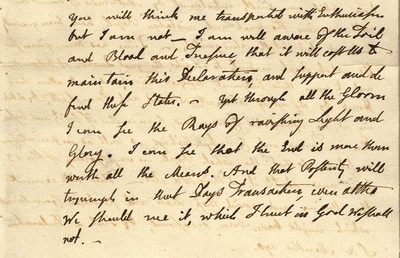 You will think me transported with Enthusiasm
but I am not. — I am well aware of the Toil
and Blood and Treasure, that it will cost Us to
maintain this Declaration, and support and de
fend these States. — Yet through all the Gloom
I can see the Rays of ravishing Light and
Glory. I can see that the End is more than
worth all the Means. And that Posterity will
tryumph in that Days Transaction, even altho
We should rue it, which I trust in God We shall
not. —